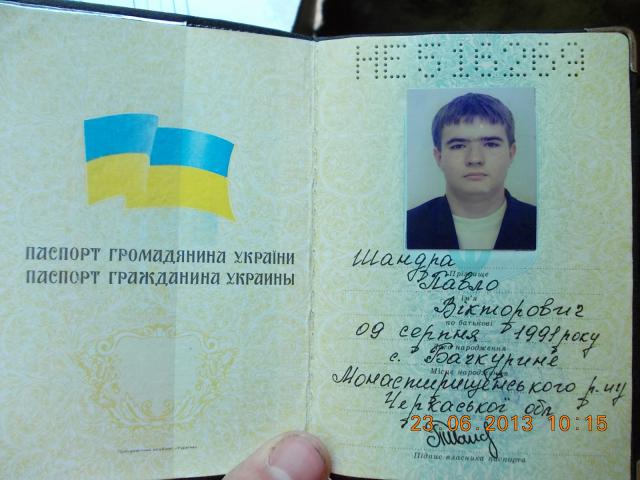 ПАСПОРТ ГРОМАДЯНИНА УКРАЇНИ
ПАСПОРТ ГРАЖДАНИНА УКРАИНЫ
НЕ 515269
Шандра
Прізвище
Павло
ім'я
Вікторович
по батькові
09 серпня 1991 року
Дата народження
с. Бачкурине
Місце народження
Монастирищенського р-ну
Черкаської обл
23.06.2013 10:15
Підпис власника паспорта